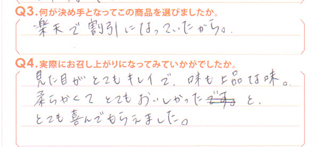 Q3.何が決め手となってこの商品を選びましたか。
楽天で割引になっていたから。
Q4.実際にお召し上がりになってみていかがでしたか。
見た目がとてもキレイで、味も上品な味。
柔らかくてとてもおいしかったです。と、
とても喜んでもらえました。